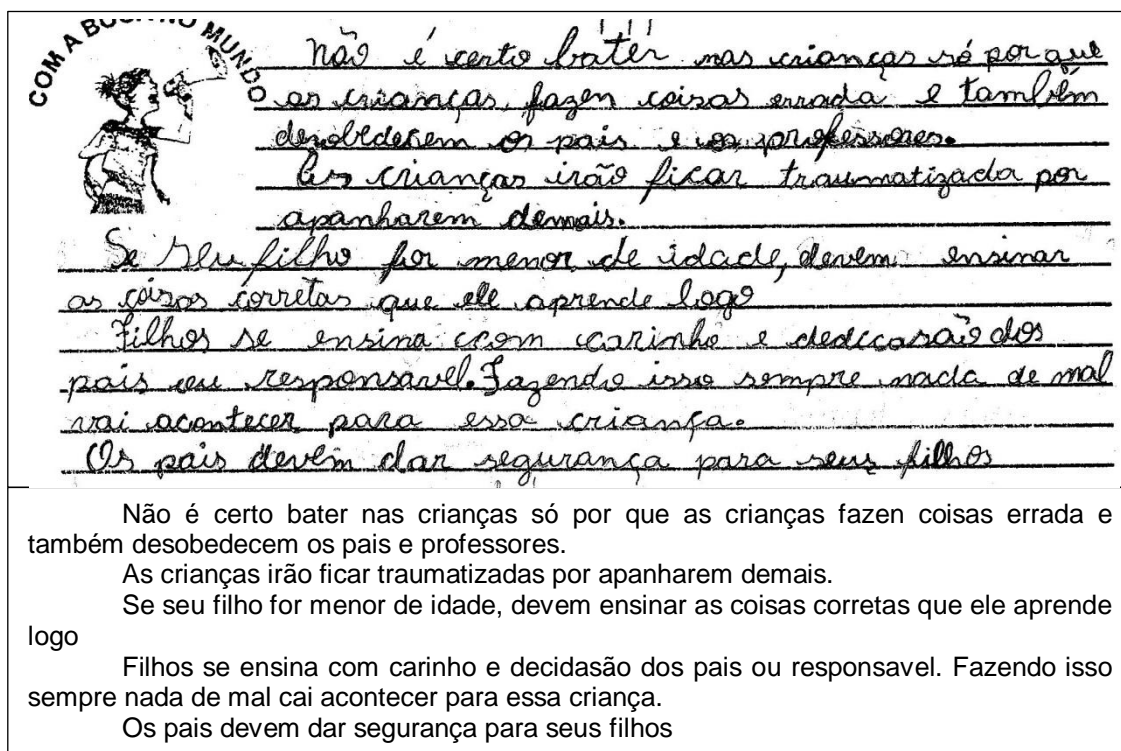 COM A BOCA NO MUNDO
Não é certo bater nas crianças só por que
as crianças, fazen coisas errada e também
desobedesem os pais e os professores.
As crianças irão ficar traumatizada por
apanharem demais.
Se seu filho for menor de idade, devem ensinar
as coisas corretas que ele aprende logo
Filhos se ensina ccom carinho e dedicasão dos
pais ou responsavel. Fazendo isso sempre nada de mal
vai acontecer para essa criança.
Os pais devem dar segurança para seus filhos
Não é certo bater nas crianças só por que as crianças fazen coisas errada e
também desobedecem os pais e professores.
As crianças irão ficar traumatizadas por apanharem demais.
Se seu filho for menor de idade, devem ensinar as coisas corretas que ele aprende
logo
Filhos se ensina com carinho e decidasão dos pais ou responsavel. Fazendo isso
sempre nada de mal cai acontecer para essa criança.
Os pais devem dar segurança para seus filhos